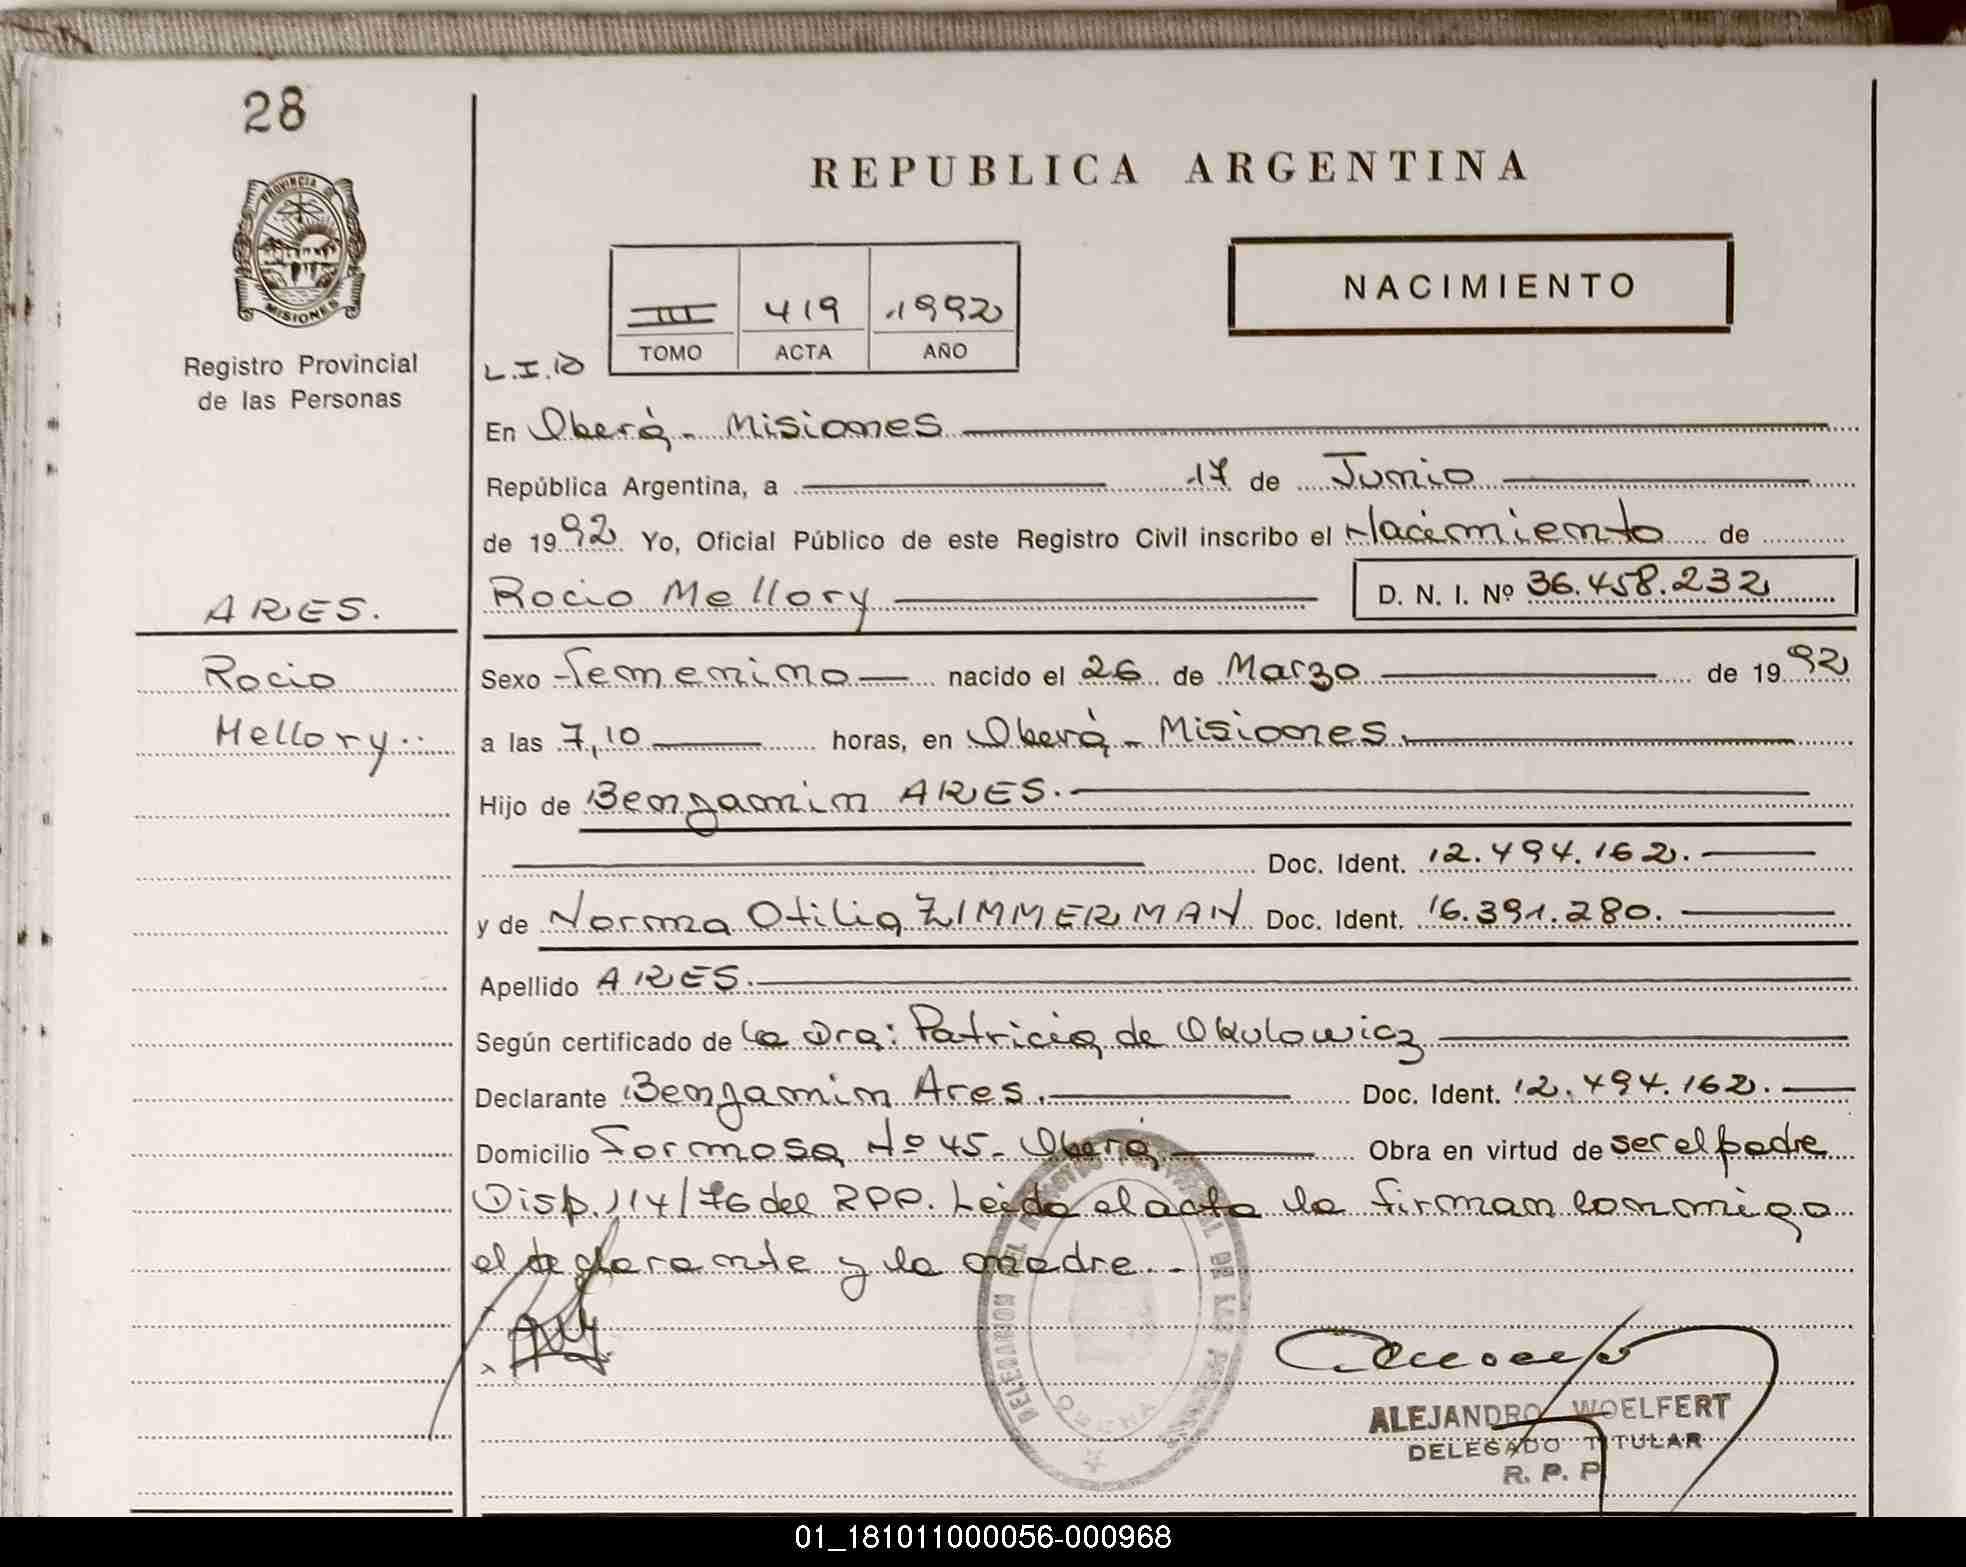 28
REPUBLICA ARGENTINA
PROVINCIA DE
MISIONES
Registro Provincial
de las Personas
III 419 1992
TOMO ACTA AÑO
NACIMIENTO
L.I.D
En Oberá - Misiones
República Argentina, a 17 de Junio
de 1992 Yo, Oficial Público de este Registro Civil inscribo el Nacimiento de
ARES.
Rocio Mellory D. N. I. Nº 36.458.232
Rocio
Mellory
Sexo femenino nacido el 26 de Marzo de 1992
a las 7,10 horas, en Oberá - Misiones.
Hijo de Benjamin ARES.
Doc. Ident. 12.494.162.
y de Norma Otilia ZIMMERMAN Doc. Ident. 16.391.280.
Apellido ARES.
Según certificado de la Dra: Patricia de Okulowicz
Declarante Benjamin Ares. Doc. Ident. 12.494.162.
Domicilio Formosa Nº 45 - Oberá Obra en virtud de ser el padre
Disp. 114/76 del RPP. Leida el acta la firman conmigo
el declarante y la madre. -
DELEGACION DEL REGISTRO PROVINCIAL DE LAS
ALEJANDRO WOELFERT
DELEGADO TITULAR
R. P. P
01_181011000056-000968